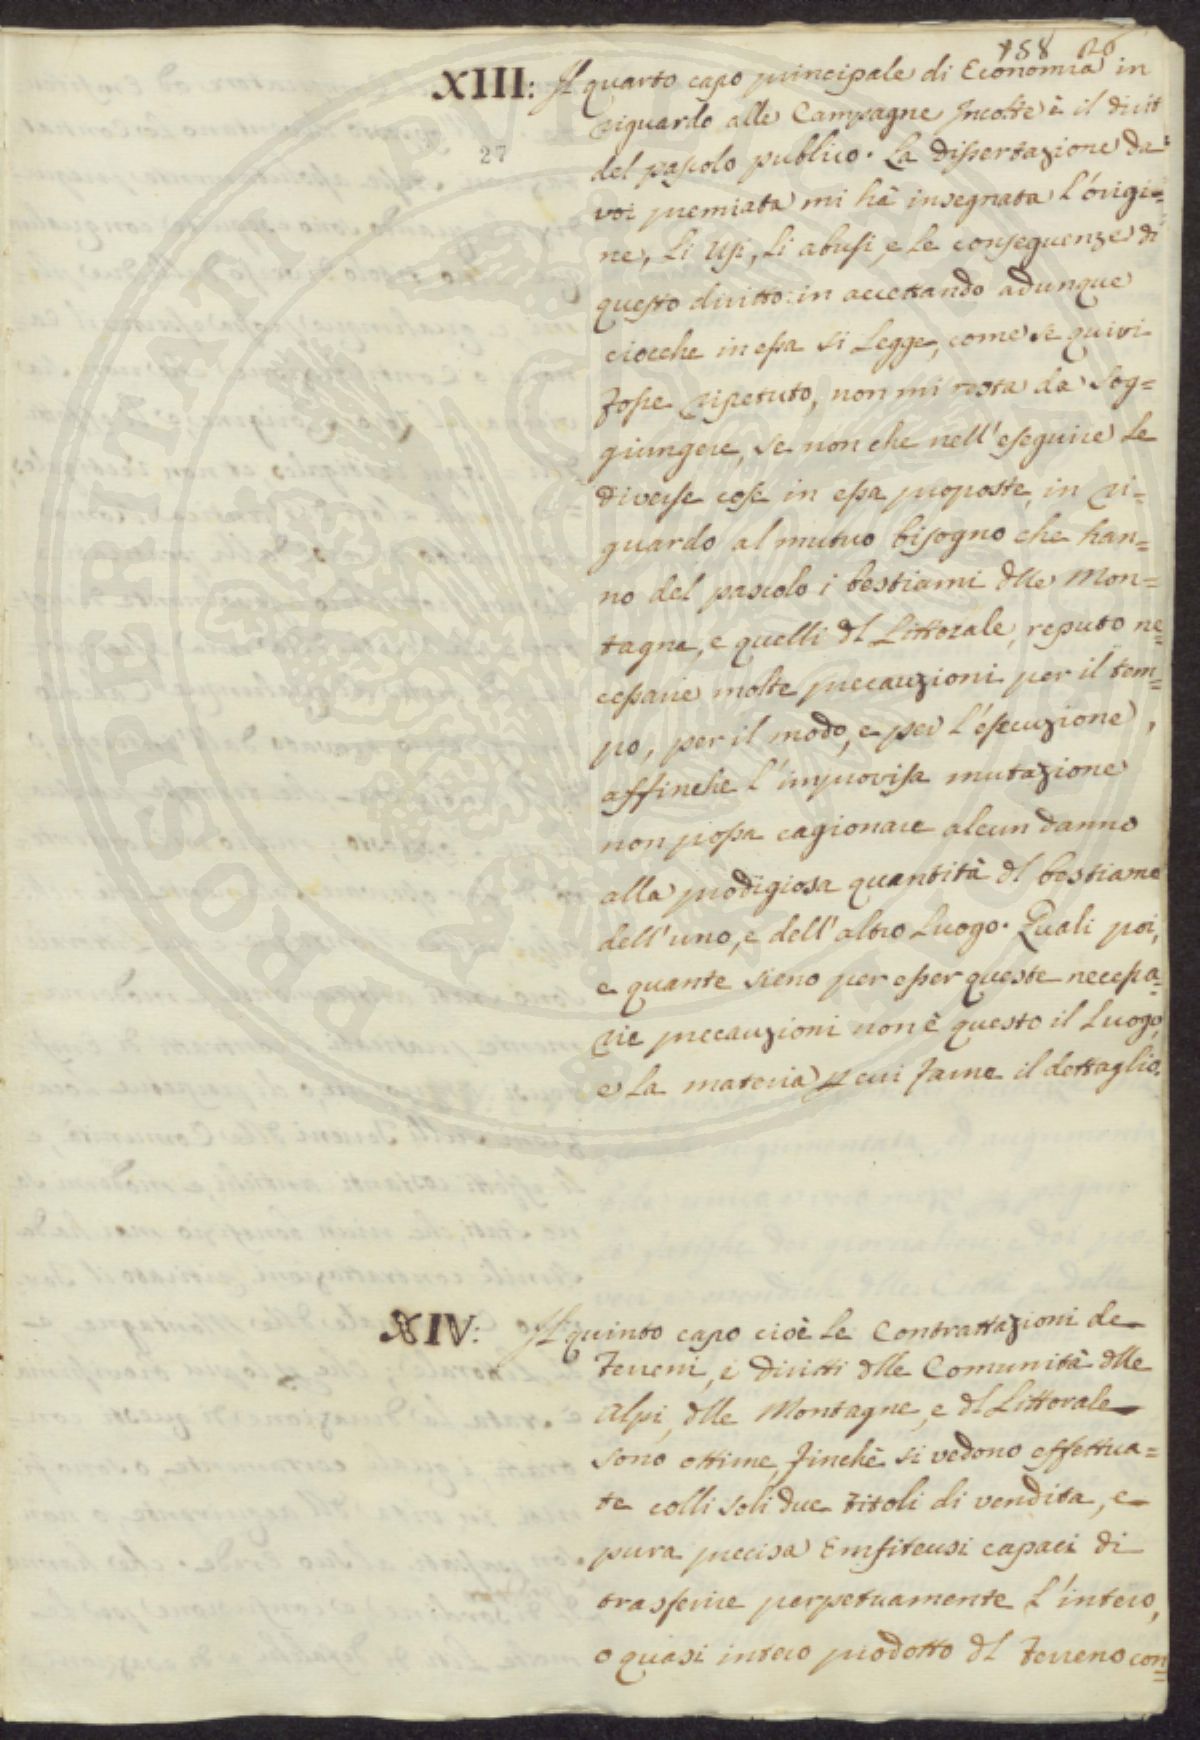 158 26
XIII: Il quarto capo principale di Economia in
riguardo alle Campagne Incolte è il diritt
27
del pascolo publico. La Dissertazione da
voi premiata mi hà insegnata l'origi=
ne, li Usi, li abusi, e le conseguenze di
questo diritto: in accettando adunque
ciocche in essa si legge, come se quivi
fosse ripetuto, non mi resta da sog=
giungere, se non che nell'eseguire le
diverse cose in essa proposte, in ri=
guardo al mutuo bisogno che han=
no del pascolo i bestiami dlle Mon=
tagne, e quelli dl Littorale, reputo ne=
cessarie molte precauzioni per il tem=
po, per il modo, e per l'esecuzione,
affinche l'improvisa mutazione
non possa cagionare alcun danno
alla prodigiosa quantità dl bestiame
dell'uno, e dell'altro Luogo. Quali poi,
e quante sieno per esser queste necessa=
rie precauzioni non è questo il Luogo,
e la materia p cui farne il dettaglio.
XIV: Il quinto capo cioè le Contrattazioni de
Terreni, e diritti dlle Comunità dlle
Alpi, dlle Montagne, e dl Littorale
sono ottime, finchè si vedono effettua=
te colli soli due titoli di vendita, e
pura precisa Emfiteusi capaci di
trasferire perpetuamente l'intero,
o quasi intero prodotto dl Terreno con=
PROSPERITATI PVBLICAE